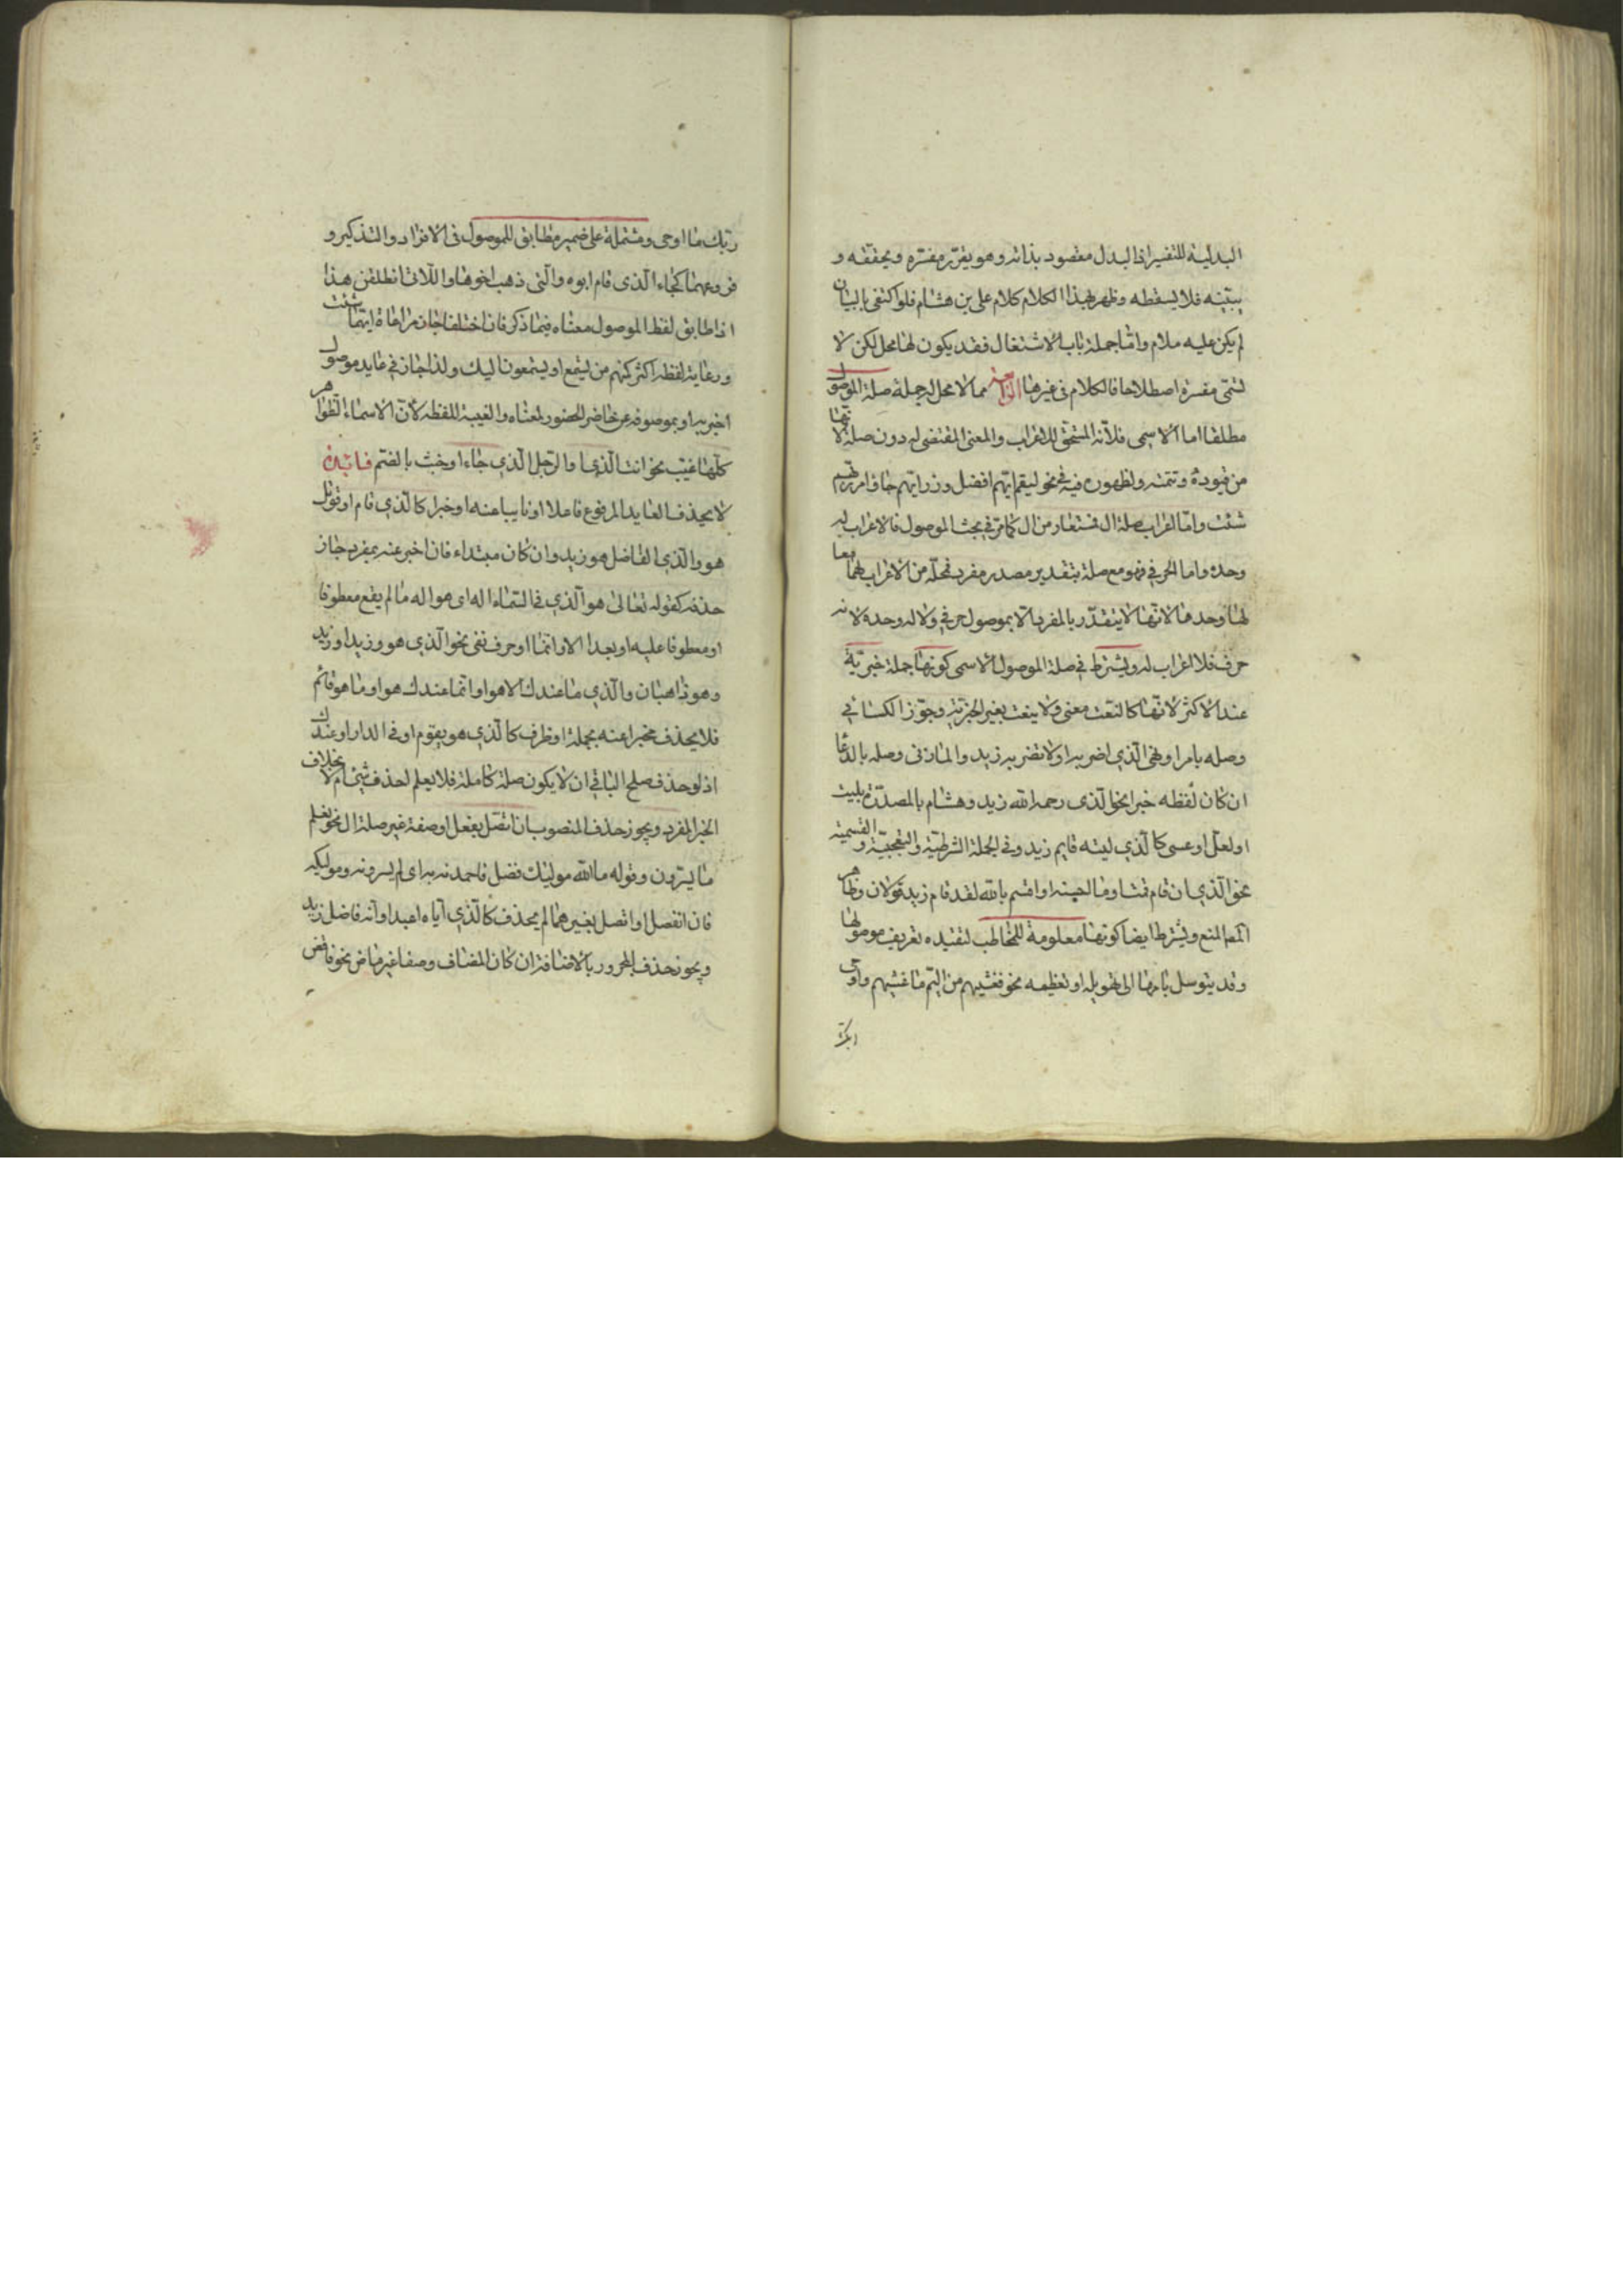 البدلية للتفسير اذ البدل مقصود بذاته وهو يقرر مفسره ويحققه و
يبينه فلا يسقطه وظهر بهذا الكلام كلام على بن هشام فلو اكتفى بالبيان
لم يكن عليه ملام واما جملة باب الاشتغال فقد يكون لها محل لكن لا
تسمى مفسرة اصطلاحا فالكلام فى غيرها الرابعة مما لا محل له جملة صلة الموصول
مطلقا اما الاسمى فلانه المستحق للاعراب والمعنى المقتضى له دون صلة لانها
من قيوده وتتمته ولظهوره فيه فى نحو ليقم ايهم افضل وزر ايهم جاء وامرر بايهم
شئت واما اعراب صلة ال فمستعار من ال كما مر فى بحث الموصول فالاعراب له
وحده واما الحرفى فهو مع صلة بتقدير مصدر مفرد فمحله من الاعراب لهما معا
لها وحدها لانها لا يتقدر بالمفرد الا بموصول حرفى ولا له وحده لانه
حرف فلا اعراب له ويشترط فى صلة الموصول الاسمى كونها جملة خبرية
عند الاكثر لانها كالنعت معنى ولا ينعت بغير الخبرية وجوز الكسائى
وصله بامر او نهى الذى اضربه او لا تضربه زيد والمازنى وصله بالدعا
ان كان لفظه خبرا نحو الذى رحمه الله زيد وهشام بالمصدرة بليت
او لعل او عسى كالذى ليته قايم زيد وفى الجملة الشرطية والتعجبية والقسمية
نحو الذى ان قام قمنا وما احسنه او اقسم بالله لقد قام زيد قولان وظاهر
المنع ويشترط ايضا كونها معلومة للمخاطب لتفيده تعريف موصولها
وقد يتوسل بابهامها الى تهويله او تعظيمه نحو فغشيهم من اليم ما غشيهم واوحى
ربك ما اوحى ومشتملة على ضمير مطابق للموصول فى الافراد والتذكير و
فروعهما كجاء الذى قام ابوه والتى ذهب اخوها واللاتى انطلقن هذا
اذا طابق لفظ الموصول معناه فيما ذكر فان اختلفا جاز مراعاة ايهما شئت
ورعاية لفظه اكثر كمنهم من يستمع او يستمعون اليك ولذا جاز فى عايد موصول
اخبر به او بموصوفه عن حاضر الحضور لمعناه والغيبة للفظه لان الاسماء الظواهر
كلها غيب نحو انت الذى او الرجل الذى جاء او خبث بالضم فايدة
لا يحذف العايد المرفوع فاعلا او نايبا عنه او خبرا كالذى قام او قوتل
هو والذى الفاضل هو زيد وان كان مبتداء فان اخبر عنه بمفرد جاز
حذفه كقوله تعالى هو الذى فى السماء اله اى هو اله ما لم يقع معطوفا
او معطوفا عليه او بعد الا وانما او حرف نفى نحو الذى هو وزيد او زيد
وهو ذاهبان والذى ما عندك الا هو او انما عندك هو او ما هو قائم
فلا يحذف مخبرا عنه بجملة او ظرف كالذى هو يقوم او فى الدار او عندك
اذ لو حذف صلح الباقى ان لا يكون صلة كاملة فلا يعلم احذف شئ ام لا بخلاف
الخبر المفرد ويجوز حذف المنصوب ان اتصل بفعل او صفة غير صلة ال نحو يعلم
ما يسرون وقوله ما الله موليك فضل فاحمدنه به اى لم يسرونه وموليكه
فان انفصل او اتصل بغيرهما لم يحذف كالذى اياه اعبد او انه فاضل زيد
ويجوز حذف المجرور بالاضافة ان كان المضاف وصفا غير ماض نحو فاقض